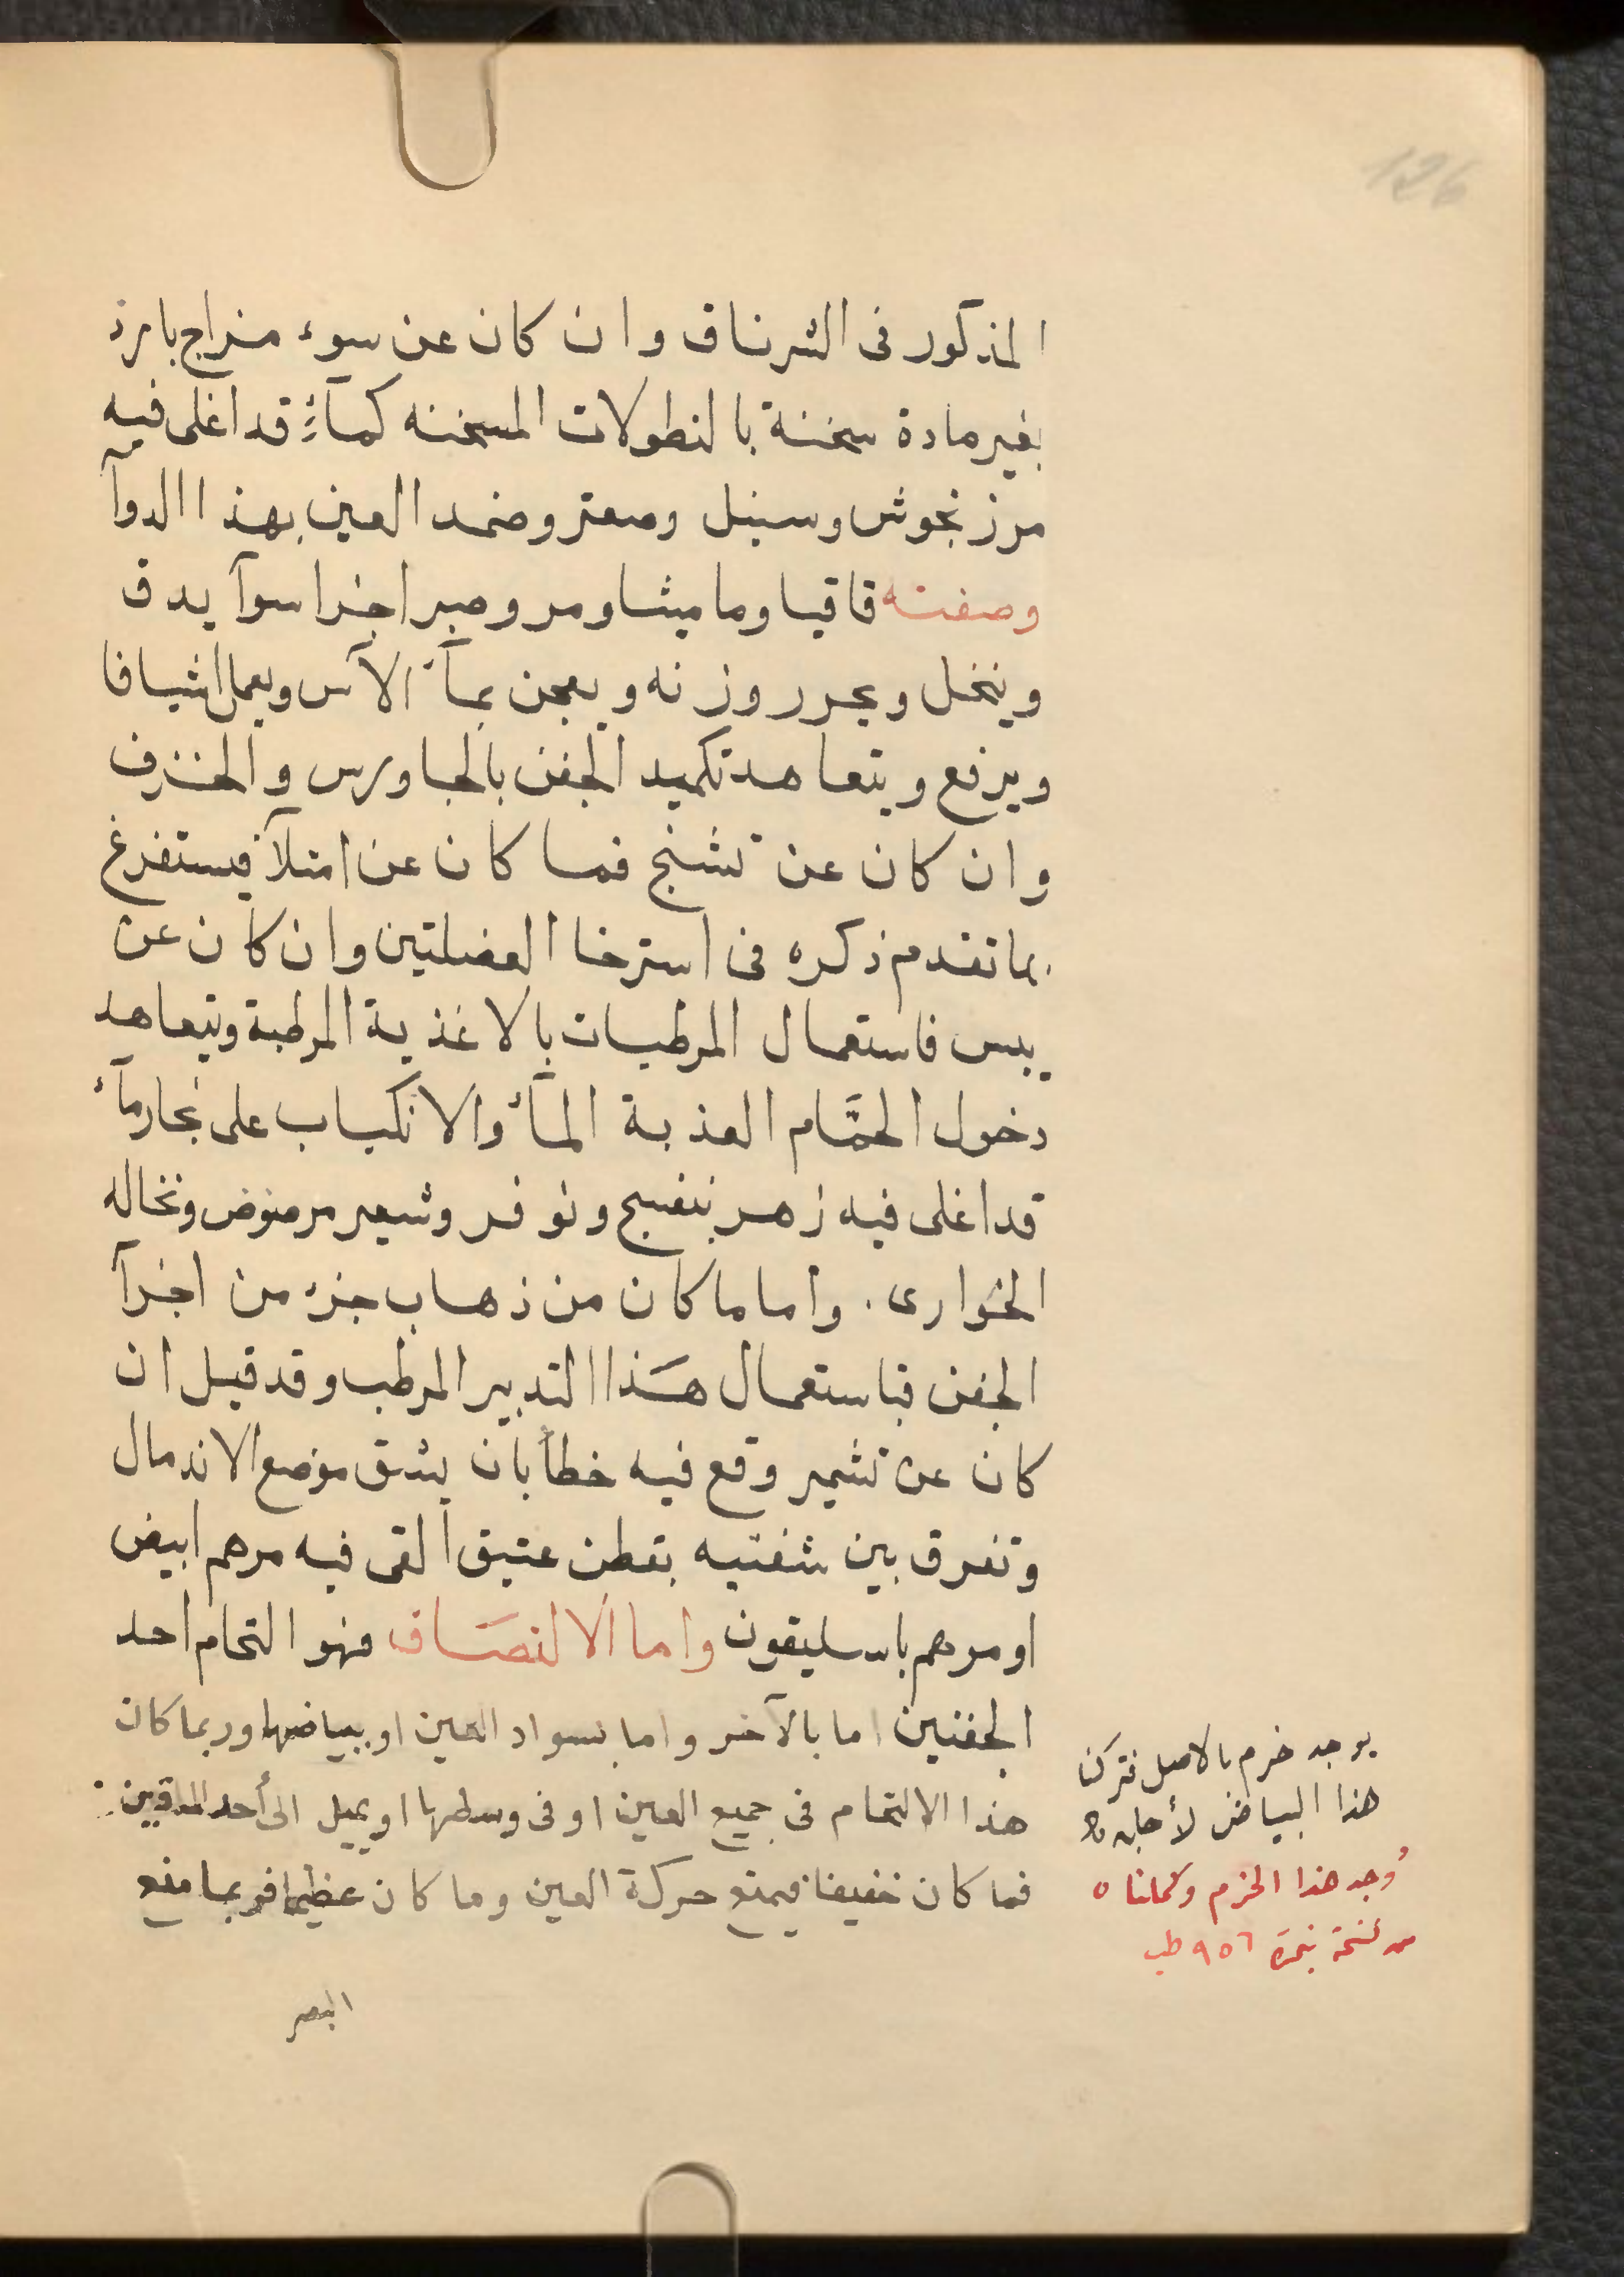 126
المذكور فى الشرناق وان كان عن سوء مزاج بارد
بغير مادة سخنة بالنطولات المسخنه كمآء قد اغلى فيه
مرزنجوش وسنبل وصعتر وضمد العين بهذا الدوآ
وصفته قاقيا وماميثا ومر وصبر اجزا سوآ يدق
وينخل ويحرر وزنه ويعجن بمآء الآس ويعمل اشيافا
ويرفع ويتعاهد تكميد الجفن بالجاورس والخزف
وان كان عن تشنج فما كان عن امتلآ فيستفرغ
بما تقدم ذكره فى استرخا العضلتين وان كان عن
يبس فاستعمال المرطبات بالاغذية المرطبة ويتعاهد
دخول الحمَّام العذبة المآء والانكباب على بخار مآء
قد اغلى فيه زهر بنفسج ونوفر وشعير مرضوض ونخاله
الحوارى. واما ما كان من ذهاب جزء من اجزآ
الجفن فباستعمال هَذا التدبير المرطب وقد قيل ان
كان عن تشمير وقع فيه خطأ بان يشق موضع الاندمال
وتفرق بين شفتيه بقطن عتيق القى فيه مرهم ابيض
او مرهم باسليقون واما الالتصَاق فهو التحام احد
الجفنين اما بالآخر واما بسواد العين او ببياضها وربما كان
هذا الالتحام فى جميع العين او فى وسطها او يميل الى أحد الماقين
فما كان خفيفا فيمنع حركة العين وما كان عظيما فربما منع
البصر
يوجد خرم بالاصل فتركنا
هذا البياض لأجله
وُجد هذا الخرم وكملناه
من نسخة بنمرة ٩٥٦ طب